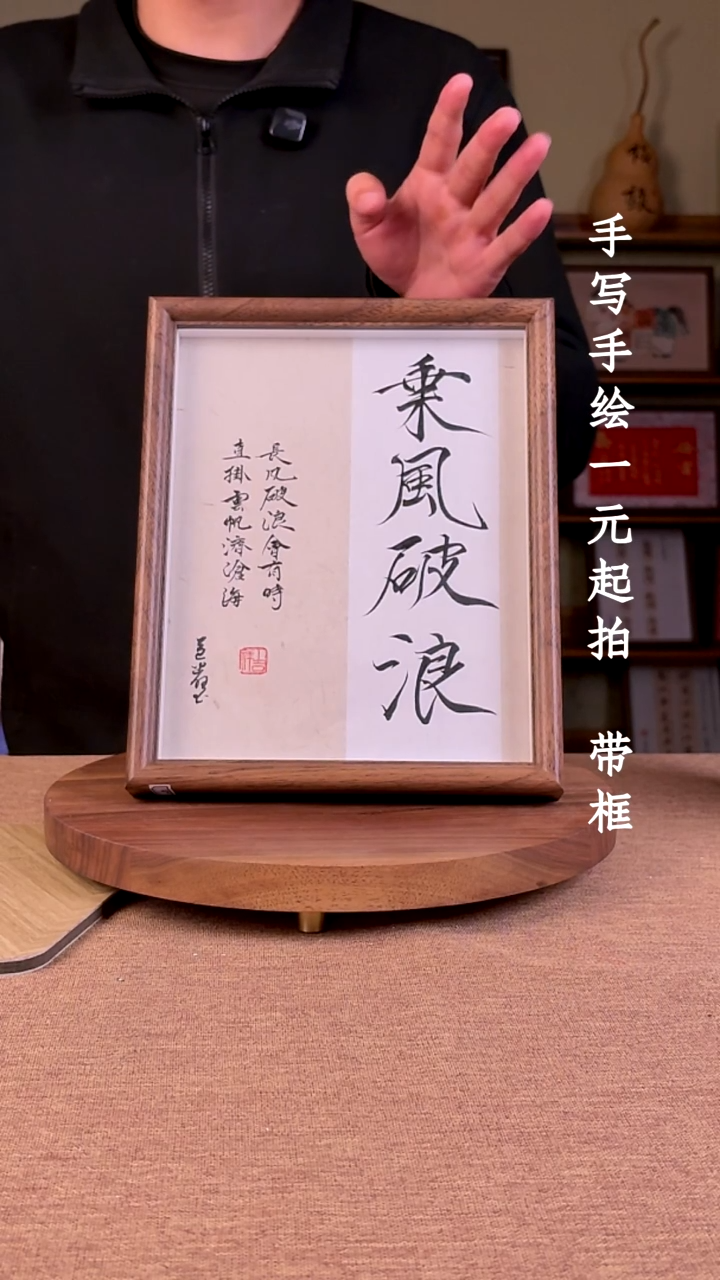 乗風破浪
長風破浪會有時
直掛雲帆濟滄海
手写手绘一元起拍 带框